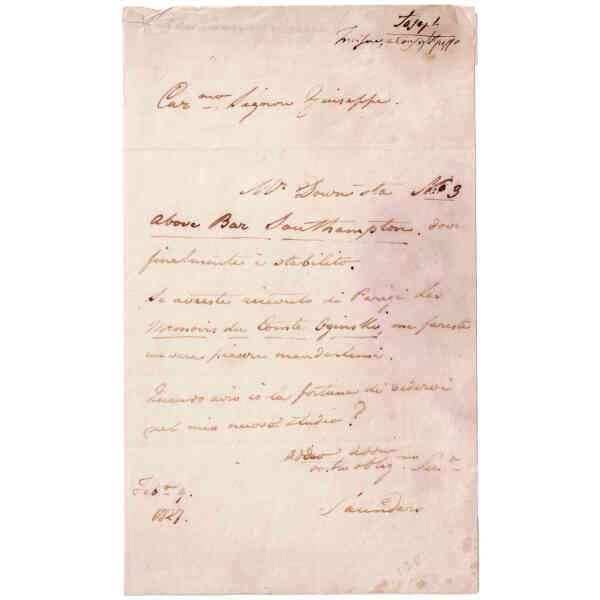 Joseph
Car.mo Signor Giuseppe.
Mr. Down sta No 3
above Bar Southampton. dove
finalmente è stabilito.
Se avreste ricevuto di Parigi les
Memoirs du Comte Oginski, me fareste
piacere mandarlemi.
Quando avrò io la fortuna di vedervi
nel mio nuovo studio?
addio addio
vostro oblig.mo Ser.e
Saunders
Feb. 9.
1827.